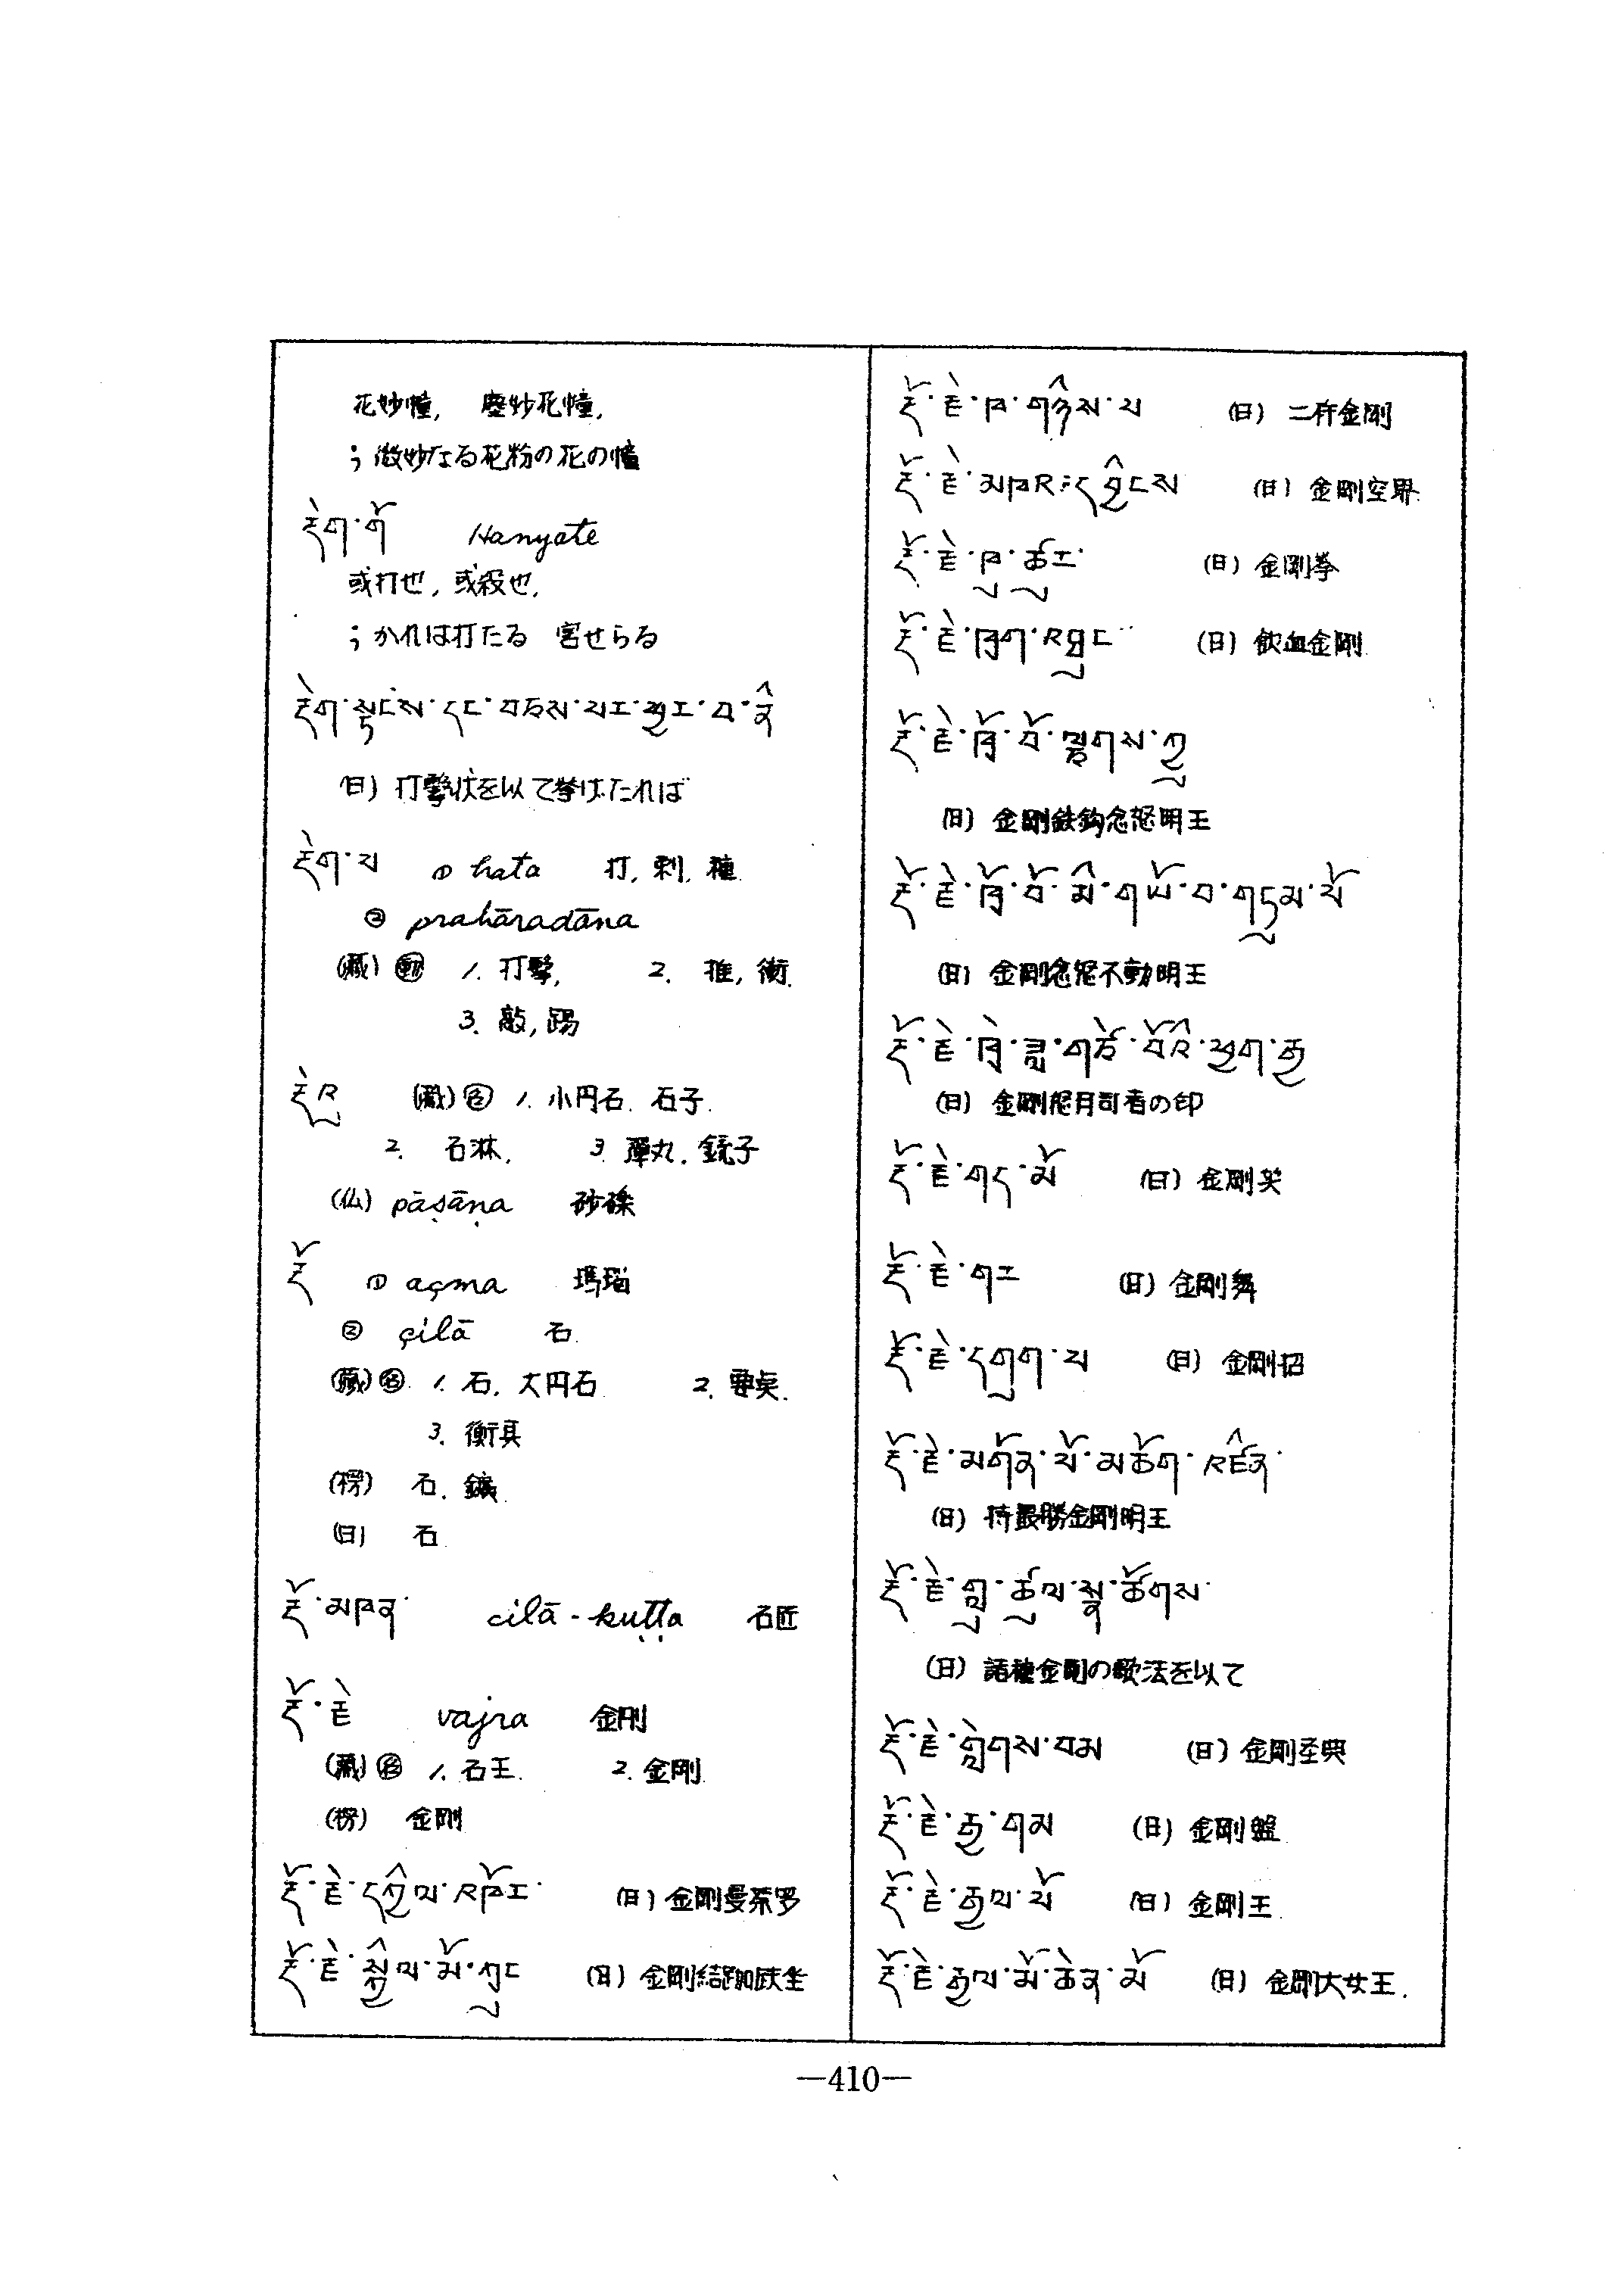 花妙幢, 塵妙花幢,
; 微妙なる花粉の花の幢
རྡེག་གོ Hanyate
或打也, 或殺也,
; かれは打たる 害せらる
རྡེག་སྟངས་དང་བཅས་པར་ཕྱར་བ་ནི
(日) 打撃状を以て挙げたれば
རྡེག་པ ① hata 打, 刺, 種
② prahāradāna
(蔵) 動 1. 打撃, 2. 推, 衝.
3. 敲, 踢
རྡེའུ (蔵) 名 1. 小円石. 石子.
2. 石淋, 3 弾丸. 鏡子
(仏) pāṣāṇa 砂礫
རྡོ ① açma 瑪瑙
② çilā 石.
(蔵) 名 1. 石, 大円石 2. 要点.
3. 衡具
(楞) 石. 鑛.
(日) 石.
རྡོ་མཁན་ cilā-kuṭṭa 石匠
རྡོ་རྗེ vajra 金剛
(蔵) 名 1. 石王. 2. 金剛.
(楞) 金剛
རྡོ་རྗེ་དཀྱིལ་འཁོར་ (日) 金剛曼荼罗
རྡོ་རྗེ་སྐྱིལ་མོ་ཀྲུང (日) 金剛結跏趺坐
རྡོ་རྗེ་ཁ་གཉིས་པ (日) 二杵金剛
རྡོ་རྗེ་མཁའ་དབྱིངས (日) 金剛空界.
རྡོ་རྗེ་ཁུ་ཚུར་ (日) 金剛拳
རྡོ་རྗེ་ཁྲག་འཐུང (日) 飲血金剛.
རྡོ་རྗེ་ཁྲོ་བོ་ལྕགས་ཀྱུ
(日) 金剛鉄鈎忿怒明王
རྡོ་རྗེ་ཁྲོ་བོ་མི་གཡོ་བ་གཏུམ་པོ
(日) 金剛忿怒不動明王
རྡོ་རྗེ་ཁྲོ་ཟླ་གཙོ་བོའི་ཕྱག་རྒྱ
(日) 金剛怒月司者の印
རྡོ་རྗེ་གད་མོ (日) 金剛笑
རྡོ་རྗེ་གར (日) 金剛舞
རྡོ་རྗེ་དགུག་པ (日) 金剛招
རྡོ་རྗེ་མགོན་པོ་མཆོག་འཛིན་
(日) 持最勝金剛明王
རྡོ་རྗེ་གླུ་ཚུལ་སྣ་ཚོགས་
(日) 諸種金剛の歌法を以て
རྡོ་རྗེ་གླེགས་བམ (日) 金剛圣典
རྡོ་རྗེ་རྒྱ་གམ (日) 金剛盤
རྡོ་རྗེ་རྒྱལ་པོ (日) 金剛王
རྡོ་རྗེ་རྒྱལ་མོ་ཆེན་མོ (日) 金剛大女王.
—410—